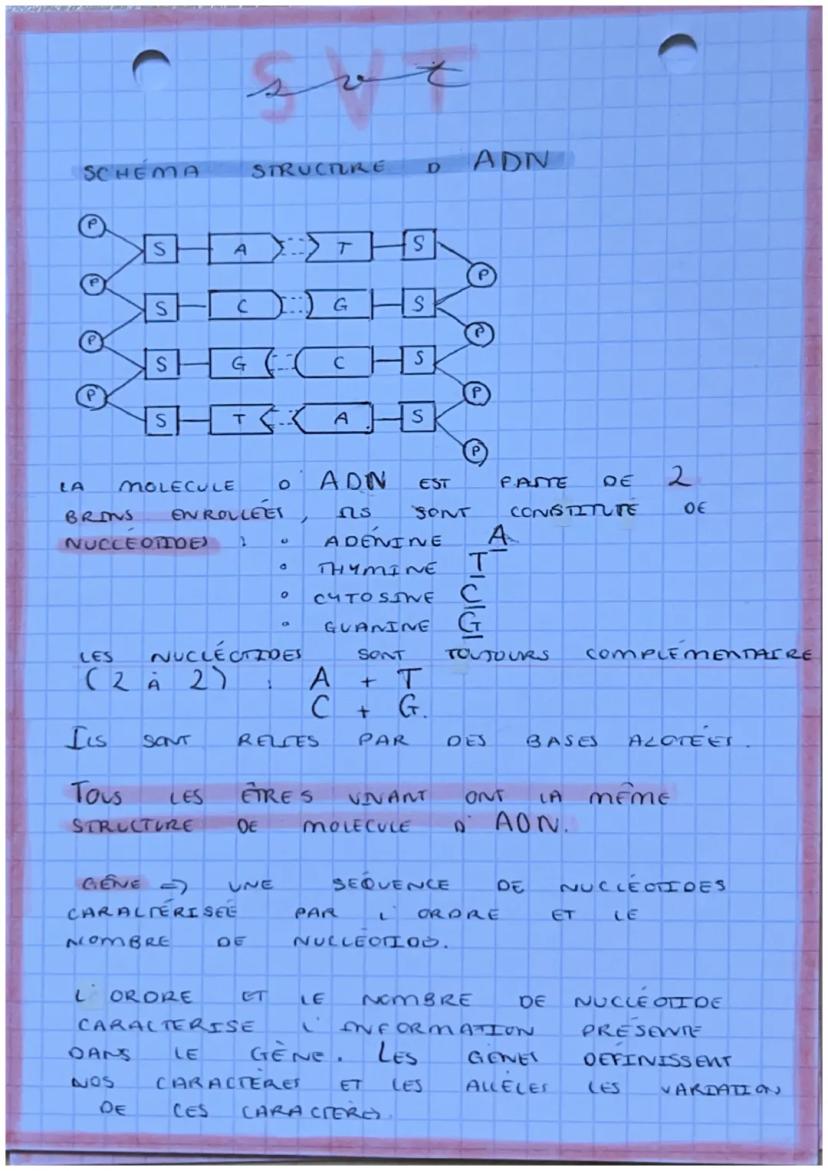 SVT
svt
SCHÉMA STRUCTURE D ADN
P
S A T S
P P
S C G S
P P
S G C S
P P
S T A S
P
LA MOLECULE D ADN EST FAITE DE 2
BRINS ENROULLÉES, ILS SONT CONSTITUTÉ DE
NUCLÉOTIDES : • ADÉNINE A
• THYMINE T
• CYTOSINE C
• GUANINE G
LES NUCLÉOTIDES SONT TOUJOURS COMPLÉMENTAIRE
(2 À 2) : A + T
C + G.
ILS SONT RELIÉS PAR DES BASES AZOTÉES.
TOUS LES ÊTRES VIVANT ONT LA MÊME
STRUCTURE DE MOLECULE D'ADN.
GÊNE => UNE SÉQUENCE DE NUCLÉOTIDES
CARACTÉRISÉE PAR L'ORDRE ET LE
NOMBRE DE NUCLÉOTIDS.
L'ORDRE ET LE NOMBRE DE NUCLÉOTIDE
CARACTERISE L'INFORMATION PRÉSENTE
DANS LE GÈNE. LES GÈNES DEFINISSENT
NOS CARACTÈRES ET LES ALLÈLES LES VARIATION
DE CES CARACTERES.